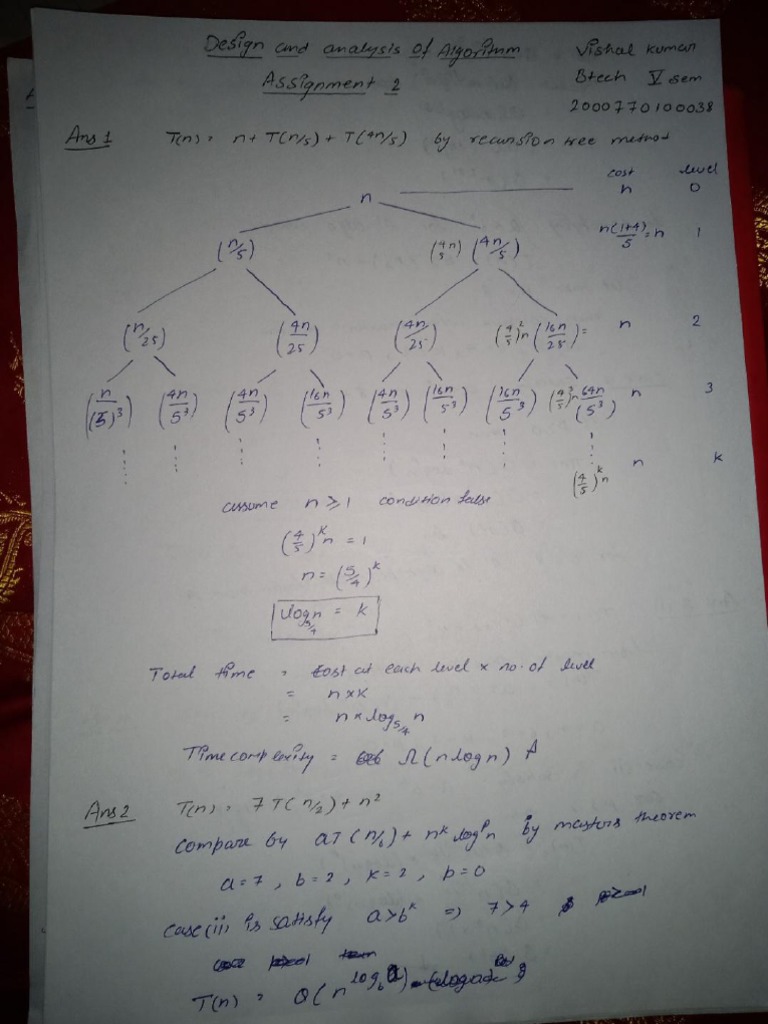 Design and analysis of Algorithm
Vishal Kumar
Assignment 2
Btech V sem
2000770100038
Ans 1 T(n) = n + T(n/5) + T(4n/5) by recursion tree method
cost level
n n 0
(n/5) (4n/5) (4n/5) n(1+4)/5 = n 1
(n/25) (4n/25) (4n/25) (4/5)²n (16n/25) = n 2
(n/(5)³) (4n/5³) (4n/5³) (16n/5³) (4n/5³) (16n/5³) (16n/5³) (4/5)³n (64n/5³) n 3
(4/5)^k n n k
assume n ≥ 1 condition false
(4/5)^k n = 1
n = (5/4)^k
log_{5/4} n = k
Total time = Cost at each level × no. of level
= n × k
= n × log_{5/4} n
Time complexity = Ω(n log n)
Ans 2 T(n) = 7T(n/2) + n²
compare by aT(n/b) + n^k log^p n by masters theorem
a = 7, b = 2, k = 2, p = 0
case(ii) is satisfy a > b^k => 7 > 4
T(n) = θ(n^{log_b a})